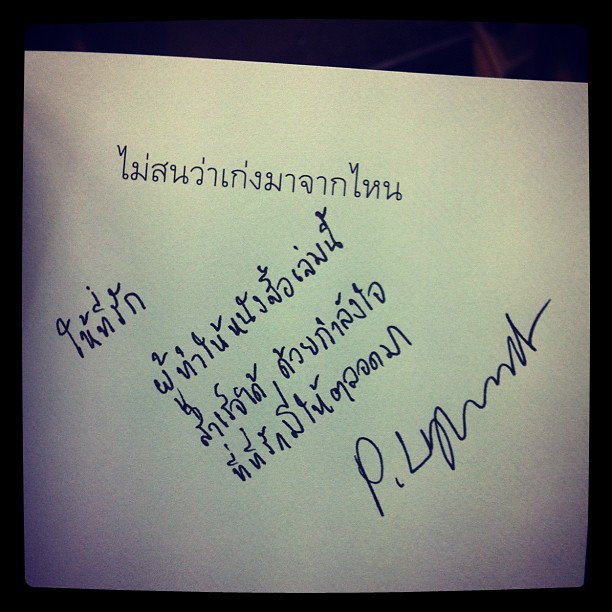 ไม่สนว่าเก่งมาจากไหน
ให้ที่รัก
ผู้ทำให้หนังสือเล่มนี้
สำเร็จได้ ด้วยกำลังใจ
ที่ที่รักมีให้ตลอดมา
P.